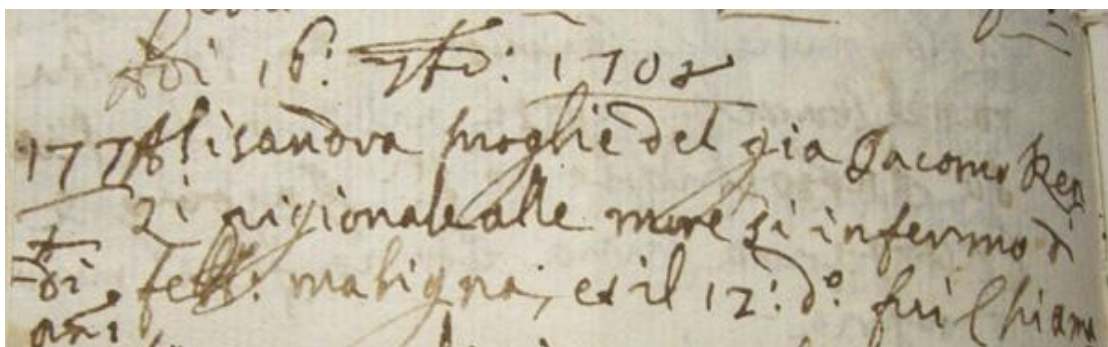 Adi 16: 1702
177 Alisandra moglie del gia Jacomo
zi pigionale alle mure si infermo di
di febb: maligna, et il 12: d.º fui Chiama